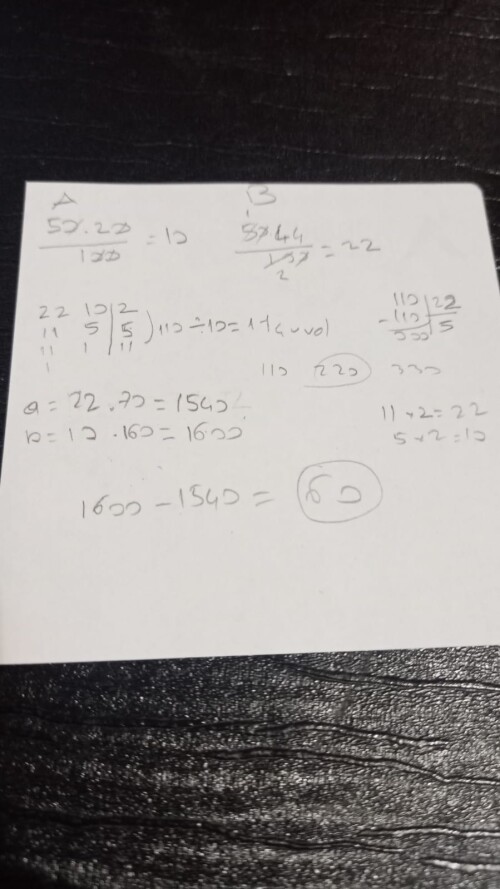 A B
50.20/100 = 10 50 44/100 = 22
1 2
22 10 | 2
11 5 | 5 ) 110 ÷ 10 = 11
11 1 | 11
1
110 | 22
-110 | 5
000
110 220 330
a = 22.70 = 1540
b = 10.160 = 1600
11 × 2 = 22
5 × 2 = 10
1600 - 1540 = 60